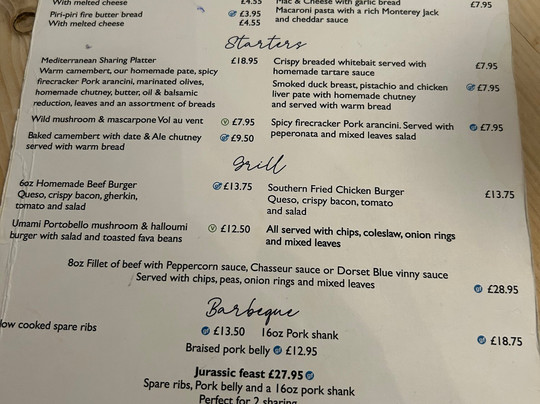 With melted cheese £4.55
Piri-piri fire butter bread £3.95
With melted cheese £4.55
Mac & Cheese with garlic bread £7.95
Macaroni pasta with a rich Monterey Jack
and cheddar sauce
Starters
Mediterranean Sharing Platter £18.95
Warm camembert, our homemade pate, spicy
firecracker Pork arancini, marinated olives,
homemade chutney, butter, oil & balsamic
reduction, leaves and an assortment of breads
Wild mushroom & mascarpone Vol au vent V £7.95
Baked camembert with date & Ale chutney £9.50
served with warm bread
Crispy breaded whitebait served with £7.95
homemade tartare sauce
Smoked duck breast, pistachio and chicken £7.95
liver pate with homemade chutney
and served with warm bread
Spicy firecracker Pork arancini. Served with £7.95
peperonata and mixed leaves salad
Grill
6oz Homemade Beef Burger £13.75
Queso, crispy bacon, gherkin,
tomato and salad
Umami Portobello mushroom & halloumi V £12.50
burger with salad and toasted fava beans
Southern Fried Chicken Burger £13.75
Queso, crispy bacon, tomato
and salad
All served with chips, coleslaw, onion rings
and mixed leaves
8oz Fillet of beef with Peppercorn sauce, Chasseur sauce or Dorset Blue vinny sauce
Served with chips, peas, onion rings and mixed leaves £28.95
Barbeque
low cooked spare ribs £13.50 16oz Pork shank £18.75
Braised pork belly £12.95
Jurassic feast £27.95
Spare ribs, Pork belly and a 16oz pork shank
Perfect for 2 sharing